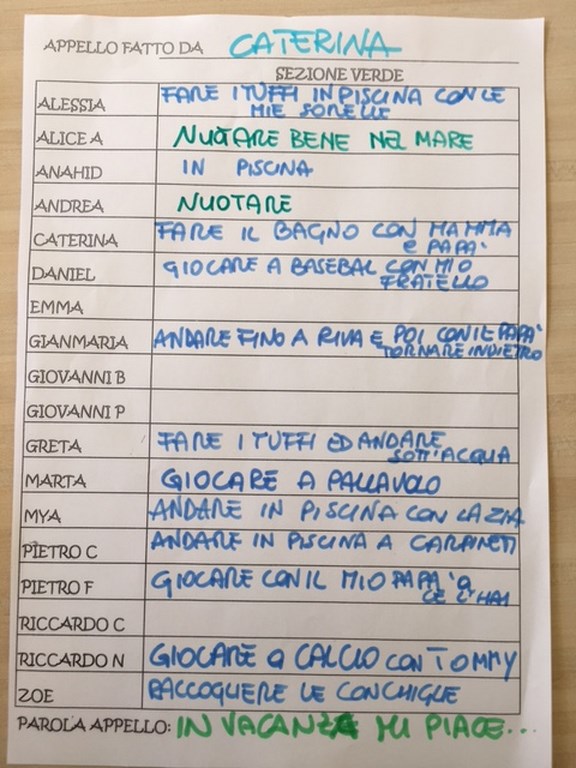 APPELLO FATTO DA CATERINA
SEZIONE VERDE
ALESSIA FARE I TUFFI IN PISCINA CON LE
MIE SORELLE
ALICE A NUOTARE BENE NEL MARE
ANAHID IN PISCINA
ANDREA NUOTARE
CATERINA FARE IL BAGNO CON MAMMA
E PAPA'
DANIEL GIOCARE A BASEBAL CON MIO
FRATELLO
EMMA
GIANMARIA ANDARE FINO A RIVA E POI CON IL PAPA'
TORNARE INDIETRO
GIOVANNI B
GIOVANNI P
GRETA FARE I TUFFI ED ANDARE
SOTT'ACQUA
MARTA GIOCARE A PALLAVOLO
MYA ANDARE IN PISCINA CON LA ZIA
PIETRO C ANDARE IN PISCINA A CARPINETI
PIETRO F GIOCARE CON IL MIO PAPA' a
CE L'HAI
RICCARDO C
RICCARDO N GIOCARE a CALCIO CON TOMMY
ZOE RACCOGLIERE LE CONCHIGLIE
PAROLA APPELLO: IN VACANZA MI PIACE...